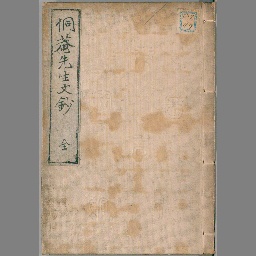 侗菴先生文鈔 全